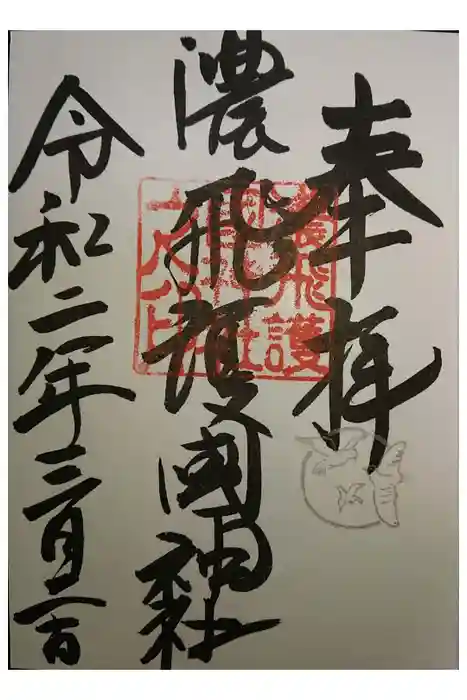 奉拝
濃飛護國神社
濃飛護
國神社
之印
令和二年三月二日